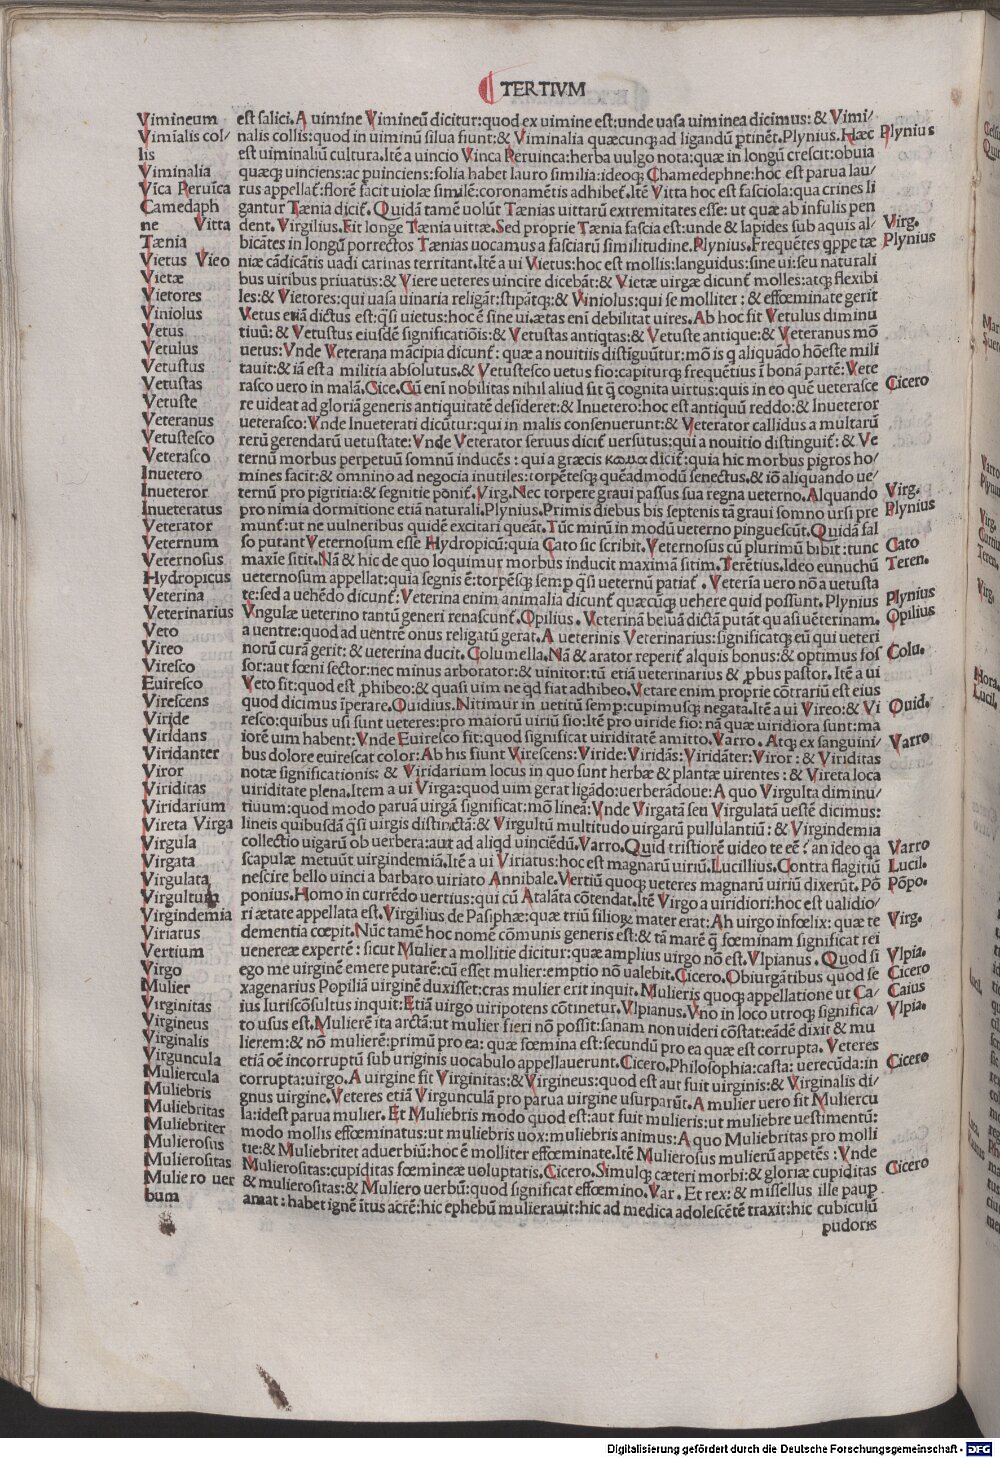 TERTIVM
Vimineum
Vimīalis col/
lis
Viminalia
Vīca Peruīca
Camedaph
ne Vitta
Tænia
Vietus Vieo
Vietæ
Vietores
Viniolus
Vetus
Vetulus
Vetustus
Vetustas
Vetuste
Veteranus
Vetustesco
Veterasco
Inuetero
Inueteror
Inueteratus
Veterator
Veternum
Veternosus
Hydropicus
Veterina
Veterinarius
Veto
Vireo
Viresco
Euiresco
Virescens
Viride
Viridans
Viridanter
Viror
Viriditas
Viridarium
Vireta Virga
Virgula
Virgata
Virgulata
Virgultum
Virgindemia
Viriatus
Vertium
Virgo
Mulier
Virginitas
Virgineus
Virginalis
Virguncula
Muliercula
Muliebris
Muliebritas
Muliebriter
Mulierosus
Mulierositas
Muliero uer
bum
est salici. A uimine Vimineū dicitur: quod ex uimine est: unde uasa uiminea dicimus: & Vimi/
nalis collis: quod in uiminū silua fiunt: & Viminalia quæcunq; ad ligandū ptinēt. Plynius. Hæc
est uiminaliū cultura. Itē a uincio Vinca Peruinca: herba uulgo nota: quæ in longū crescit: obuia
quæq; uinciens: ac puinciens: folia habet lauro similia: ideoq; Chamedephne: hoc est parua lau/
rus appellaſ: florē facit uiolæ similē: coronamētis adhibeſ. Itē Vitta hoc est fasciola: qua crines li
gantur Tænia diciſ. Quidā tamē uolūt Tænias uittarū extremitates esse: ut quæ ab infulis pen
dent. Virgilius. Fit longe Tænia uittæ. Sed proprie Tænia fascia est: unde & lapides sub aquis al/
bicātes in longū porrectos Tænias uocamus a fasciarū similitudine. Plynius. Frequētes qppe tæ
niæ cādicātis uadi carinas territant. Itē a ui Vietus: hoc est mollis: languidus: sine ui: seu naturali
bus uiribus priuatus: & Viere ueteres uincire dicebāt: & Vietæ uirgæ dicunſ molles: atq; flexibi
les: & Vietores: qui uasa uinaria religāt: stipātq;: & Viniolus: qui se molliter: & effœminate gerit
Vetus etiā dictus est: qsi uietus: hoc ē sine ui. ætas eni debilitat uires. Ab hoc fit Vetulus diminu
tiuū: & Vetustus eiusdē significatiōis: & Vetustas antiqtas: & Vetuste antique: & Veteranus mō
uetus: Vnde Veterana mācipia dicunſ: quæ a nouitiis distiguūtur: mō is q aliquādo hōeste mili
tauit: & iā est a militia absolutus. & Vetustesco uetus fio: capiturq; frequētius i bonā partē: Vete
rasco uero in malā. Cice. Cū enī nobilitas nihil aliud sit q cognita virtus: quis in eo quē ueterasce
re uideat ad gloriā generis antiquitatē desideret: & Inuetero: hoc est antiquū reddo: & Inueteror
ueterasco: Vnde Inueterati dicūtur: qui in malis consenuerunt: & Veterator callidus a multarū
rerū gerendarū uetustate: Vnde Veterator seruus diciſ uersutus: qui a nouitio distinguiſ: & Ve
ternū morbus perpetuū somnū inducēs: qui a græcis κωμα diciſ: quia hic morbus pigros ho/
mines facit: & omnino ad negocia inutiles: torpētesq; quēadmodū senectus. & iō aliquando ue/
ternū pro pigritia: & segnitie poniſ. Virg. Nec torpere graui passus sua regna ueterno. Alquando
pro nimia dormitione etiā naturali. Plynius. Primis diebus bis septenis tā graui somno ursi pre
munſ: ut ne uulneribus quidē excitari queāt. Tūc mirū in modū ueterno pinguescūt. Quidā fal
so putant Veternosum esse Hydropicū: quia Cato sic scribit. Veternosus cū plurimū bibit: tunc
maxīe sitit. Nā & hic de quo loquimur morbus inducit maximā sitim. Terētius. Ideo eunuchū
ueternosum appellat: quia segnis ē: torpēsq; semp qsi ueternū patiaſ. Veterīa uero nō a uetusta
te: sed a uehēdo dicunſ: Veterina enim animalia dicunſ quæcūq; uehere quid possunt. Plynius
Vngulæ ueterino tantū generi renascunſ. Opilius. Veterinā beluā dictā putāt quasi uēterinam.
a uentre: quod ad uentrē onus religatū gerat. A ueterinis Veterinarius: significatq; eū qui ueteri
norū curā gerit: & ueterina ducit. Columella. Nā & arator reperiſ alquis bonus: & optimus fos
sor: aut fœni sector: nec minus arborator: & uinitor: tū etiā ueterinarius & pbus pastor. Itē a ui
Veto fit: quod est phibeo: & quasi uim ne qd fiat adhibeo. Vetare enim proprie cōtrariū est eius
quod dicimus īperare. Ouidius. Nitimur in uetitū semp: cupimusq; negata. Itē a ui Vireo: & Vi
resco: quibus usi sunt ueteres: pro maiorū uiriū fio: Itē pro uiride fio: nā quæ uiridiora sunt: ma
iorē uim habent: Vnde Euiresco fit: quod significat uiriditatē amitto. Varro. Atq; ex sanguini/
bus dolore euirescat color: Ab his fiunt Virescens: Viride: Viridās: Viridāter: Viror: & Viriditas
notæ significationis: & Viridarium locus in quo sunt herbæ & plantæ uirentes: & Vireta loca
uiriditate plena. Item a ui Virga: quod uim gerat ligādo: uerberādoue: A quo Virgulta diminu/
tiuum: quod modo paruā uirgā significat: mō lineā: Vnde Virgatā seu Virgulatā uestē dicimus:
lineis quibusdā qsi uirgis distinctā: & Virgultū multitudo uirgarū pullulantiū: & Virgindemia
collectio uigarū ob uerbera: aut ad aliqd uinciēdū. Varro. Quid tristiorē uideo te eē? an ideo qa
scapulæ metuūt uirgindemiā. Itē a ui Viriatus: hoc est magnarū uiriū. Lucillius. Contra flagitiū
nescire bello uinci a barbaro uiriato Annibale. Vertiū quoq; ueteres magnarū uiriū dixerūt. Pō
ponius. Homo in currēdo uertius: qui cū Atalāta cōtendat. Itē Virgo a uiridiori: hoc est ualidio/
ri ætate appellata est. Virgilius de Pasiphæ: quæ triū filiorꝝ mater erat: Ah uirgo infœlix: quæ te
dementia cœpit. Nūc tamē hoc nomē cōmunis generis est: & tā marē q fœminam significat rei
uenereæ expertē: sicut Mulier a mollitie dicitur: quæ amplius uirgo nō est. Vlpianus. Quod si
ego me uirginē emere putarē: cū esset mulier: emptio nō ualebit. Cicero. Obiurgātibus quod se
xagenarius Popiliā uirginē duxisset: cras mulier erit inquit. Mulieris quoq; appellatione ut Ca/
ius Iuriscōsultus inquit: Etiā uirgo uiripotens cōtinetur. Vlpianus. Vno in loco utroq; significa/
to usus est. Mulierē ita arctā: ut mulier fieri nō possit: sanam non uideri cōstat: eādē dixit & mu
lierem: & nō mulierē: primū pro ea: quæ fœmina est: secundū pro ea quæ est corrupta. Veteres
etiā oē incorruptū sub uriginis uocabulo appellauerunt. Cicero. Philosophia: casta: uerecūda: in
corrupta: uirgo. A uirgine fit Virginitas: & Virgineus: quod est aut fuit uirginis: & Virginalis di/
gnus uirgine. Veteres etiā Virgunculā pro parua uirgine usurparūt. A mulier uero fit Muliercu
la: idest parua mulier. Et Muliebris modo quod est: aut fuit mulieris: ut muliebre uestimentū:
modo mollis effœminatus: ut muliebris uox: muliebris animus: A quo Muliebritas pro molli
tie: & Muliebritet aduerbiū: hoc ē molliter effœminate. Itē Mulierosus mulierū appetēs: Vnde
Mulierositas: cupiditas fœmineæ uoluptatis. Cicero. Simulq; cæteri morbi: & gloriæ cupiditas
& mulierositas: & Muliero uerbū: quod significat effœmino. Var. Et rex: & misellus ille paup
amat: habet ignē ītus acrē: hic ephebū mulierauit: hic ad medica adolescētē traxit: hic cubiculū
pudoris
Plynius
Virg.
Plynius
Cicero
Virg.
Plynius
Cato
Teren.
Plynius
Opilius
Colu.
Ouid.
Varro
Varro
Lucil.
Pōpo.
Virg.
Vlpia.
Cicero
Caius
Vlpia.
Cicero
Cicero
Digitalisierung gefördert durch die Deutsche Forschungsgemeinschaft - DFG